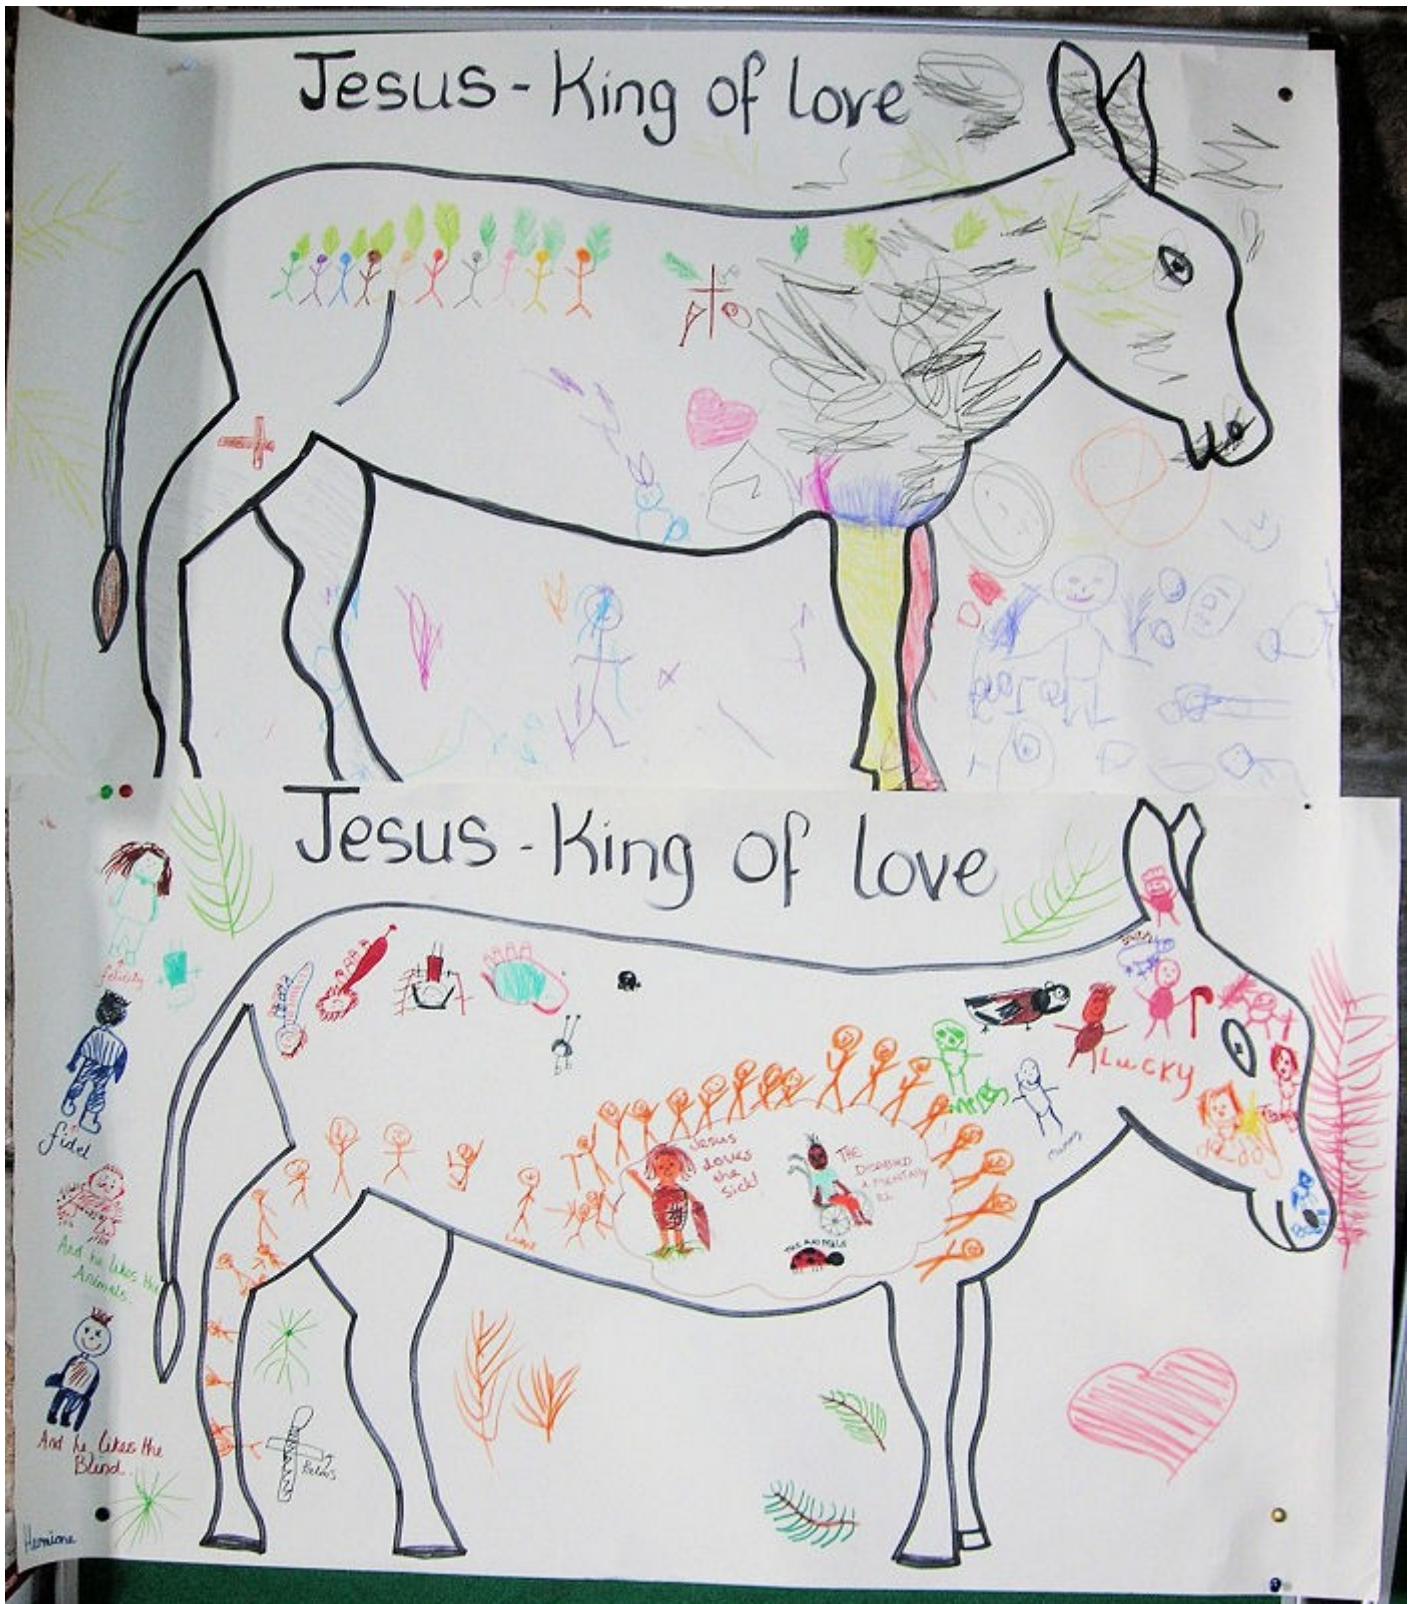 Jesus - King of love
Jesus - King of love
felicity
fidel
And he likes the
Animals.
And he likes the
Blind.
Hermione
Jesus
Loves
the
sick!
THE
DISABLED
& MENTALLY
ILL
THE ANIMALS
LUCKY
Daddy